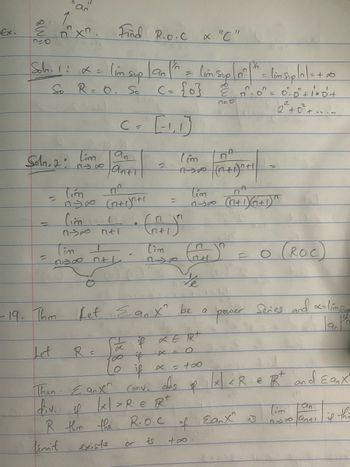 "an"
Ex. ∞ Σ n=0 nⁿ xⁿ. Find R.O.C & "C"
Soln. 1: α = lim sup |an|^1/n = lim sup |nⁿ|^1/n = lim sup |n| = +∞
So R = 0. So C = {0} ∞ Σ n=0 nⁿ·0ⁿ = 0⁰·0⁰ + 1¹·0¹ +
2²·0² + .....
C = [-1, 1]
Soln. 2: lim n→∞ |an / an+1| = lim n→∞ |nⁿ / (n+1)ⁿ⁺¹| =
= lim n→∞ nⁿ / (n+1)ⁿ⁺¹ = lim n→∞ nⁿ / (n+1)(n+1)ⁿ
= lim n→∞ 1 / n+1 · (n / n+1)ⁿ
= lim n→∞ 1 / n+1 · lim n→∞ (n / n+1)ⁿ = 0 (ROC)
0 1/e
-19. Thm Let Σ an xⁿ be a power series and α = lim sup |an|^1/n
Let R = { 1/α if α ∈ R⁺
∞ if α = 0
0 if α = +∞
Then Σ an xⁿ conv. abs if |x| < R ∈ R⁺ and Σ an xⁿ
div. if |x| > R ∈ R⁺
R thm the R.O.C of Σ an xⁿ is lim n→∞ |an / an+1| if this
limit exists or is +∞.